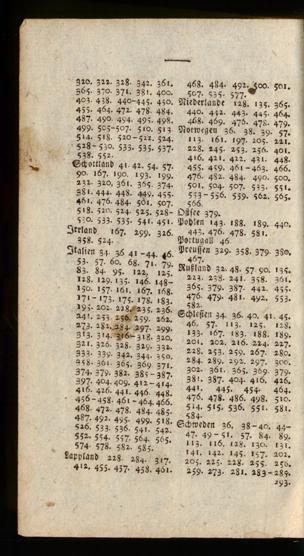 320. 322. 328. 342. 361.
365. 370. 371. 381. 400.
403. 438. 440-445. 450.
455. 464. 472. 478. 484.
487. 490. 494. 495. 498.
499. 505-507. 510. 513
514. 518. 520-522. 524.
528-530. 533. 535. 537.
538. 552.
Schottland 41. 42. 54. 57.
90. 167. 190. 193. 199.
232. 320. 361. 365. 374.
381. 444. 448. 449. 455.
461. 476. 484. 561. 507.
518. 520. 524. 525. 528-
530. 533. 535. 541. 451.
Irrland 167. 299. 326.
358. 524.
Italien 34. 36. 41-44. 46.
53. 57. 60. 68. 71. 79.
83. 84. 95. 122. 125.
128. 129. 135. 146. 148-
150. 157. 161. 167. 168.
171-173. 175. 178. 183.
195. 202. 218. 235. 236.
241. 253. 256. 259. 262.
273. 282. 284. 297. 299.
313. 314. 316-318. 320.
321. 326. 328. 329. 332.
333. 339. 342. 344. 350.
358. 361. 365. 369. 371.
374. 379. 382. 385-387.
397. 404. 409. 412-414.
416. 426. 441. 446. 448.
456-458. 461-464. 466.
468. 472. 478. 484. 485.
487. 492. 495. 499. 518.
526. 533. 536. 541. 542.
552. 554. 557. 564. 565.
574. 578. 582. 585.
Lappland 228. 284. 317.
412. 455. 457. 458. 461.
468. 484. 492. 500. 501.
507. 535. 577.
Niederlande 128. 135. 365.
440. 442. 443. 445. 464.
468. 469. 476. 478. 479.
Norwegen 36. 38. 39. 57.
113. 161. 197. 205. 221.
228. 245. 253. 256. 401.
416. 421. 422. 431. 448.
455. 459. 461-463. 466.
476. 482. 484. 490. 500.
501. 504. 507. 533. 551.
553-556. 559. 562. 565.
566.
Ostsee 379.
Pohlen 143. 188. 189. 440.
443. 476. 478. 581.
Portugall 46.
Preussen 329. 358. 379. 380.
467.
Rußland 32. 48. 57. 90. 135.
223. 238. 241. 358. 361.
365. 379. 387. 442. 455.
476. 479. 481. 492. 553.
582.
Schlesien 34. 36. 40. 41. 45.
46. 57. 113. 125. 128.
133. 167. 183. 188. 189.
201. 202. 216. 224. 227.
228. 253. 259. 267. 280.
284. 289. 292. 297. 300.
302. 361. 365. 369. 379.
381. 387. 404. 416. 426.
441. 445. 454. 464.
476. 478. 486. 498. 510.
514. 515. 536. 551. 581.
584.
Schweden 36. 38-40. 44-
47. 49-51. 57. 84. 89.
113. 116. 128. 130. 131.
141. 142. 145. 157. 202.
205. 225. 228. 255. 256.
259. 273. 281. 283-289.
293.